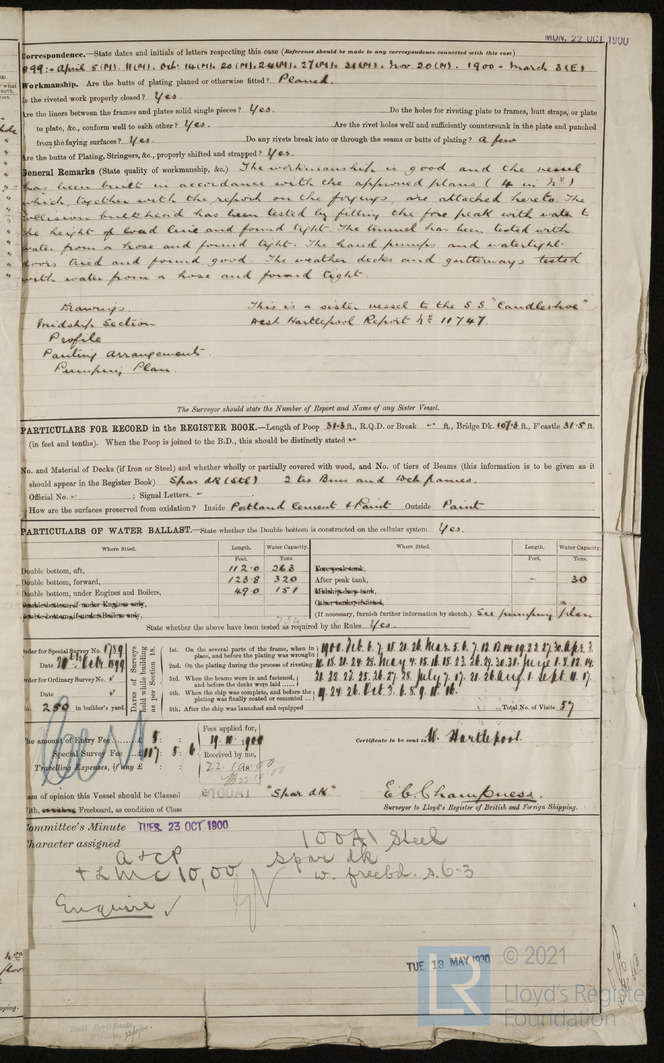 MON. 22 OCT 1900
Correspondence.—State dates and initials of letters respecting this case (Reference should be made to any correspondence connected with this case)
899:- April 5 (M). 11(M). Oct. 14(M). 20(M). 24(M). 27(M). 31(M). Nov. 20(M). 1900 - March 3(E)
Workmanship. Are the butts of plating planed or otherwise fitted? Planed.
Is the riveted work properly closed? Yes.
Are the liners between the frames and plates solid single pieces? Yes. Do the holes for riveting plate to frames, butt straps, or plate
to plate, &c., conform well to each other? Yes. Are the rivet holes well and sufficiently countersunk in the plate and punched
from the faying surfaces? Yes. Do any rivets break into or through the seams or butts of plating? a few
Are the butts of Plating, Stringers, &c., properly shifted and strapped? Yes.
General Remarks (State quality of workmanship, &c.) The workmanship is good and the vessel
has been built in accordance with the approved plans (4 in No)
which, together with the report on the forgings, are attached hereto. The
Collision bulkhead has been tested by filling the fore peak with water to
the height of load line and found tight. The tunnel has been tested with
water from a hose and found tight. The hand pumps and watertight
doors tried and found good. The weather decks and gutterways tested
with water from a hose and found tight.
Drawings. This is a sister vessel to the S.S "Candleshoe"
Midship Section West Hartlepool Report No 11747.
Profile
Panting Arrangements.
Pumping Plan.
The Surveyor should state the Number of Report and Name of any Sister Vessel.
PARTICULARS FOR RECORD in the REGISTER BOOK.—Length of Poop 31.3 ft., R.Q.D. or Break - ft., Bridge Dk. 107.3 ft., F'castle 31.5 ft.
(in feet and tenths). When the Poop is joined to the B.D., this should be distinctly stated -
No. and Material of Decks (if Iron or Steel) and whether wholly or partially covered with wood, and No. of tiers of Beams (this information is to be given as it
should appear in the Register Book) Spar dk (Stl) 2 trs Bms and Web frames.
Official No. - ; Signal Letters. -
How are the surfaces preserved from oxidation? Inside Portland Cement & Paint Outside Paint
PARTICULARS OF WATER BALLAST.—State whether the Double bottom is constructed on the cellular system Yes.
Where fitted. Length. Water Capacity. Where fitted. Length. Water Capacity.
Feet. Tons. Feet. Tons.
Double bottom, aft, 112.0 263 Fore peak tank,
Double bottom, forward, 123.8 320 After peak tank, - 30
Double bottom, under Engines and Boilers, 49.0 151 Midship deep tank,
Double bottom, if under Engines only, Other tanks, if fitted,
Double bottom, if under Boilers only, (If necessary, furnish further information by sketch.) See pumping plan
734
State whether the above have been tested as required by the Rules Yes.
Order for Special Survey No. 1789
Date 20th Feb. 1899
Order for Ordinary Survey No. ✓
Date ✓
No. 250 in builder's yard.
DATES of Surveys held while building as per Section 18.
1st. On the several parts of the frame, when in place, and before the plating was wrought
2nd. On the plating during the process of riveting
3rd. When the beams were in and fastened, and before the decks were laid
4th. When the ship was complete, and before the plating was finally coated or cemented
5th. After the ship was launched and equipped
Total No. of Visits 57
The amount of Entry Fee £ 5 : :
Special Survey Fee £ 117 : 5 : 6
Travelling Expenses, if any £
Fees applied for,
19.10.1900
Received by me,
22.10.1900
Certificate to be sent to W. Hartlepool
I am of opinion this Vessel should be Classed 100A1 "Spar dk"
With, or without Freeboard, as condition of Class
E.C. Champness.
Surveyor to Lloyd's Register of British and Foreign Shipping.
Committee's Minute TUES. 23 OCT 1900
Character assigned 100A1 Steel
A&CP Spar dk
+ LMC 10,00 w. freebd. s. 6-3
Enquire ✓
TUE. 13 MAY 1930
© 2021
LR
Lloyd's Register
Foundation